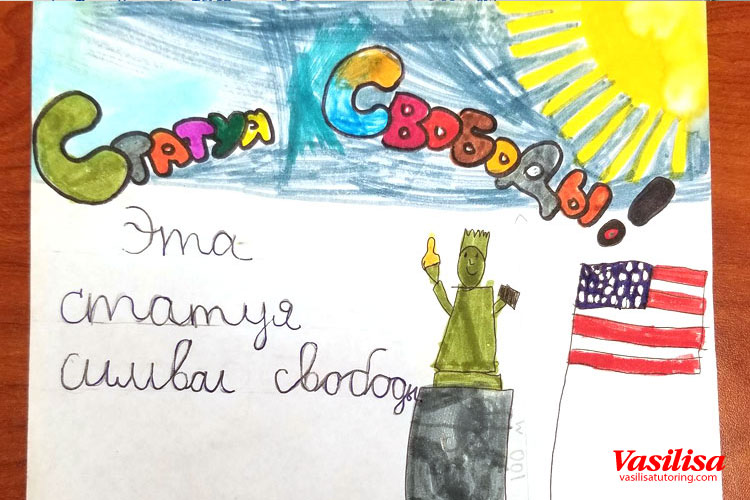 Статуя Свободы!
Эта
статуя
символ свободы.
100 м
Vasilisa
vasilisatutoring.com